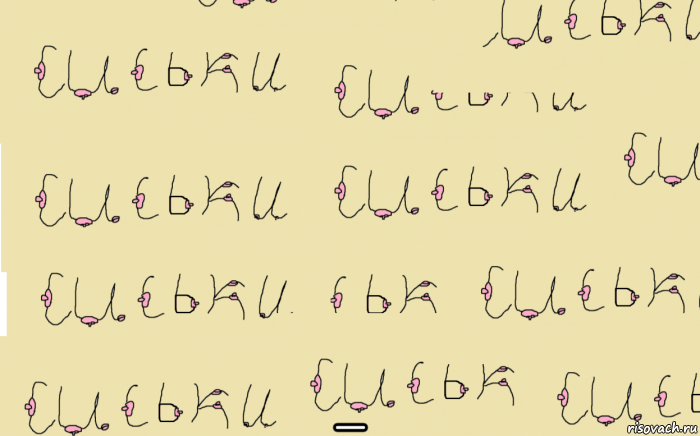 сиськи
сиськи сиськи
сиськи сиськи си
сиськи ськ сиськ
сиськи сиськ сис
risovach.ru